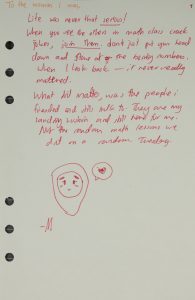 To the woman I may,
Life was never that serious!
When you see the others in math class crack
jokes, join them. don't just put your head
down and stare at the numbers.
When I look back — it never really
mattered.
What did matter, was the people I
and still talk to. They are my
and still here for me.
Not the random math lessons we
did on a random Tuesday.